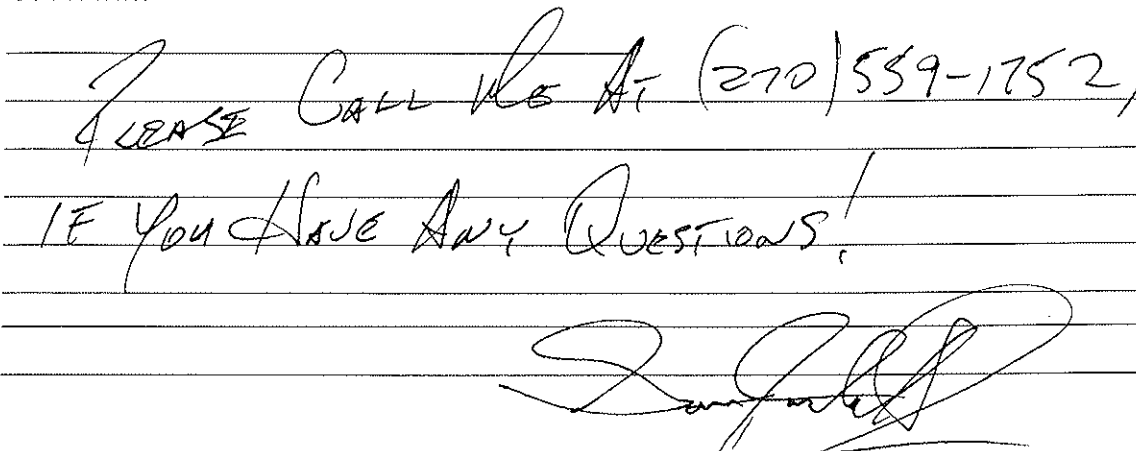 PLEASE CALL ME AT (270) 559-1752,
IF YOU HAVE ANY QUESTIONS!